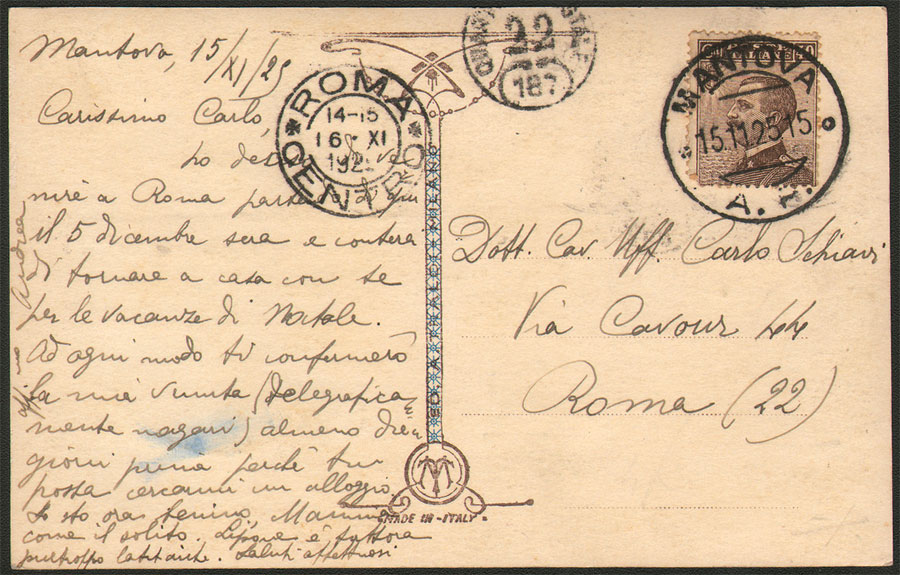 Mantova, 15/XI/25
Carissimo Carlo,
Io
nirè a Roma
il 5 dicembre sera e conterei
di tornare a casa con te
per le vacanze di Natale.
Ad ogni modo ti confermerò
la mia venuta (telegrafica=
mente magari) almeno dieci
giorni prima perché tu
possa cercarmi un alloggio.
Io sto ora benino, Mamma
come il solito. è tuttora
purtroppo latitante. Saluti affettuosi
aff.mo Andrea
ROMA CENTRO
14-15
16 XI
192
22
187
MANTOVA
15.11.25 15
A.
Dott. Cav. Uff. Carlo Schiavi
Via Cavour 44
Roma (22)
MADE IN ITALY